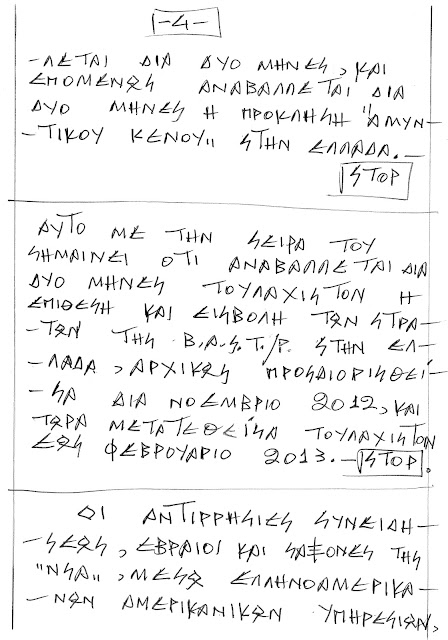 -4-
-ΛΕΤΑΙ ΔΙΑ ΔΥΟ ΜΗΝΕΣ, ΚΑΙ
ΕΠΟΜΕΝΩΣ ΑΝΑΒΑΛΛΕΤΑΙ ΔΙΑ
ΔΥΟ ΜΗΝΕΣ Η ΠΡΟΚΛΗΣΗ "ΑΜΥΝ-
-ΤΙΚΟΥ ΚΕΝΟΥ" ΣΤΗΝ ΕΛΛΑΔΑ.-
STOP
ΑΥΤΟ ΜΕ ΤΗΝ ΣΕΙΡΑ ΤΟΥ
ΣΗΜΑΙΝΕΙ ΟΤΙ ΑΝΑΒΑΛΛΕΤΑΙ ΔΙΑ
ΔΥΟ ΜΗΝΕΣ ΤΟΥΛΑΧΙΣΤΟΝ Η
ΕΠΙΘΕΣΗ ΚΑΙ ΕΙΣΒΟΛΗ ΤΩΝ ΣΤΡΑ-
-ΤΩΝ ΤΗΣ B.A.S.T./P. ΣΤΗΝ ΕΛ-
-ΛΑΔΑ, ΑΡΧΙΚΩΣ ΠΡΟΣΔΙΟΡΙΣΘΕΙ-
-ΣΑ ΔΙΑ ΝΟΕΜΒΡΙΟ 2012, ΚΑΙ
ΤΩΡΑ ΜΕΤΑΤΕΘΕΙΣΑ ΤΟΥΛΑΧΙΣΤΟΝ
ΕΩΣ ΦΕΒΡΟΥΑΡΙΟ 2013.- STOP.
ΟΙ ΑΝΤΙΡΡΗΣΙΕΣ ΣΥΝΕΙΔΗ-
-ΣΕΩΣ, ΕΒΡΑΙΟΙ ΚΑΙ ΣΑΞΟΝΕΣ ΤΗΣ
"NSA", ΜΕΣΩ ΕΛΛΗΝΟΑΜΕΡΙΚΑ-
-ΝΩΝ ΑΜΕΡΙΚΑΝΙΚΩΝ ΥΠΗΡΕΣΙΩΝ,